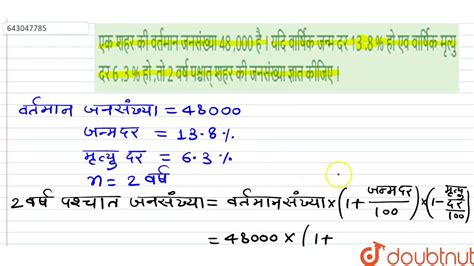 643047785
एक शहर की वर्तमान जनसंख्या 48,000 है । यदि वार्षिक जन्म दर 13.8% हो एव वार्षिक मृत्यु
दर 6.3% हो ,तो 2 वर्ष पश्चात् शहर की जनसंख्या ज्ञात कीजिए ।
वर्तमान जनसंख्या = 48000
जन्मदर = 13.8%
मृत्यु दर = 6.3%
n = 2 वर्ष
2 वर्ष पश्चात जनसंख्या = वर्तमानसंख्या × (1 + जन्मदर/100) × (1 - मृत्यु दर/100)
= 48000 × (1 +
doubtnut